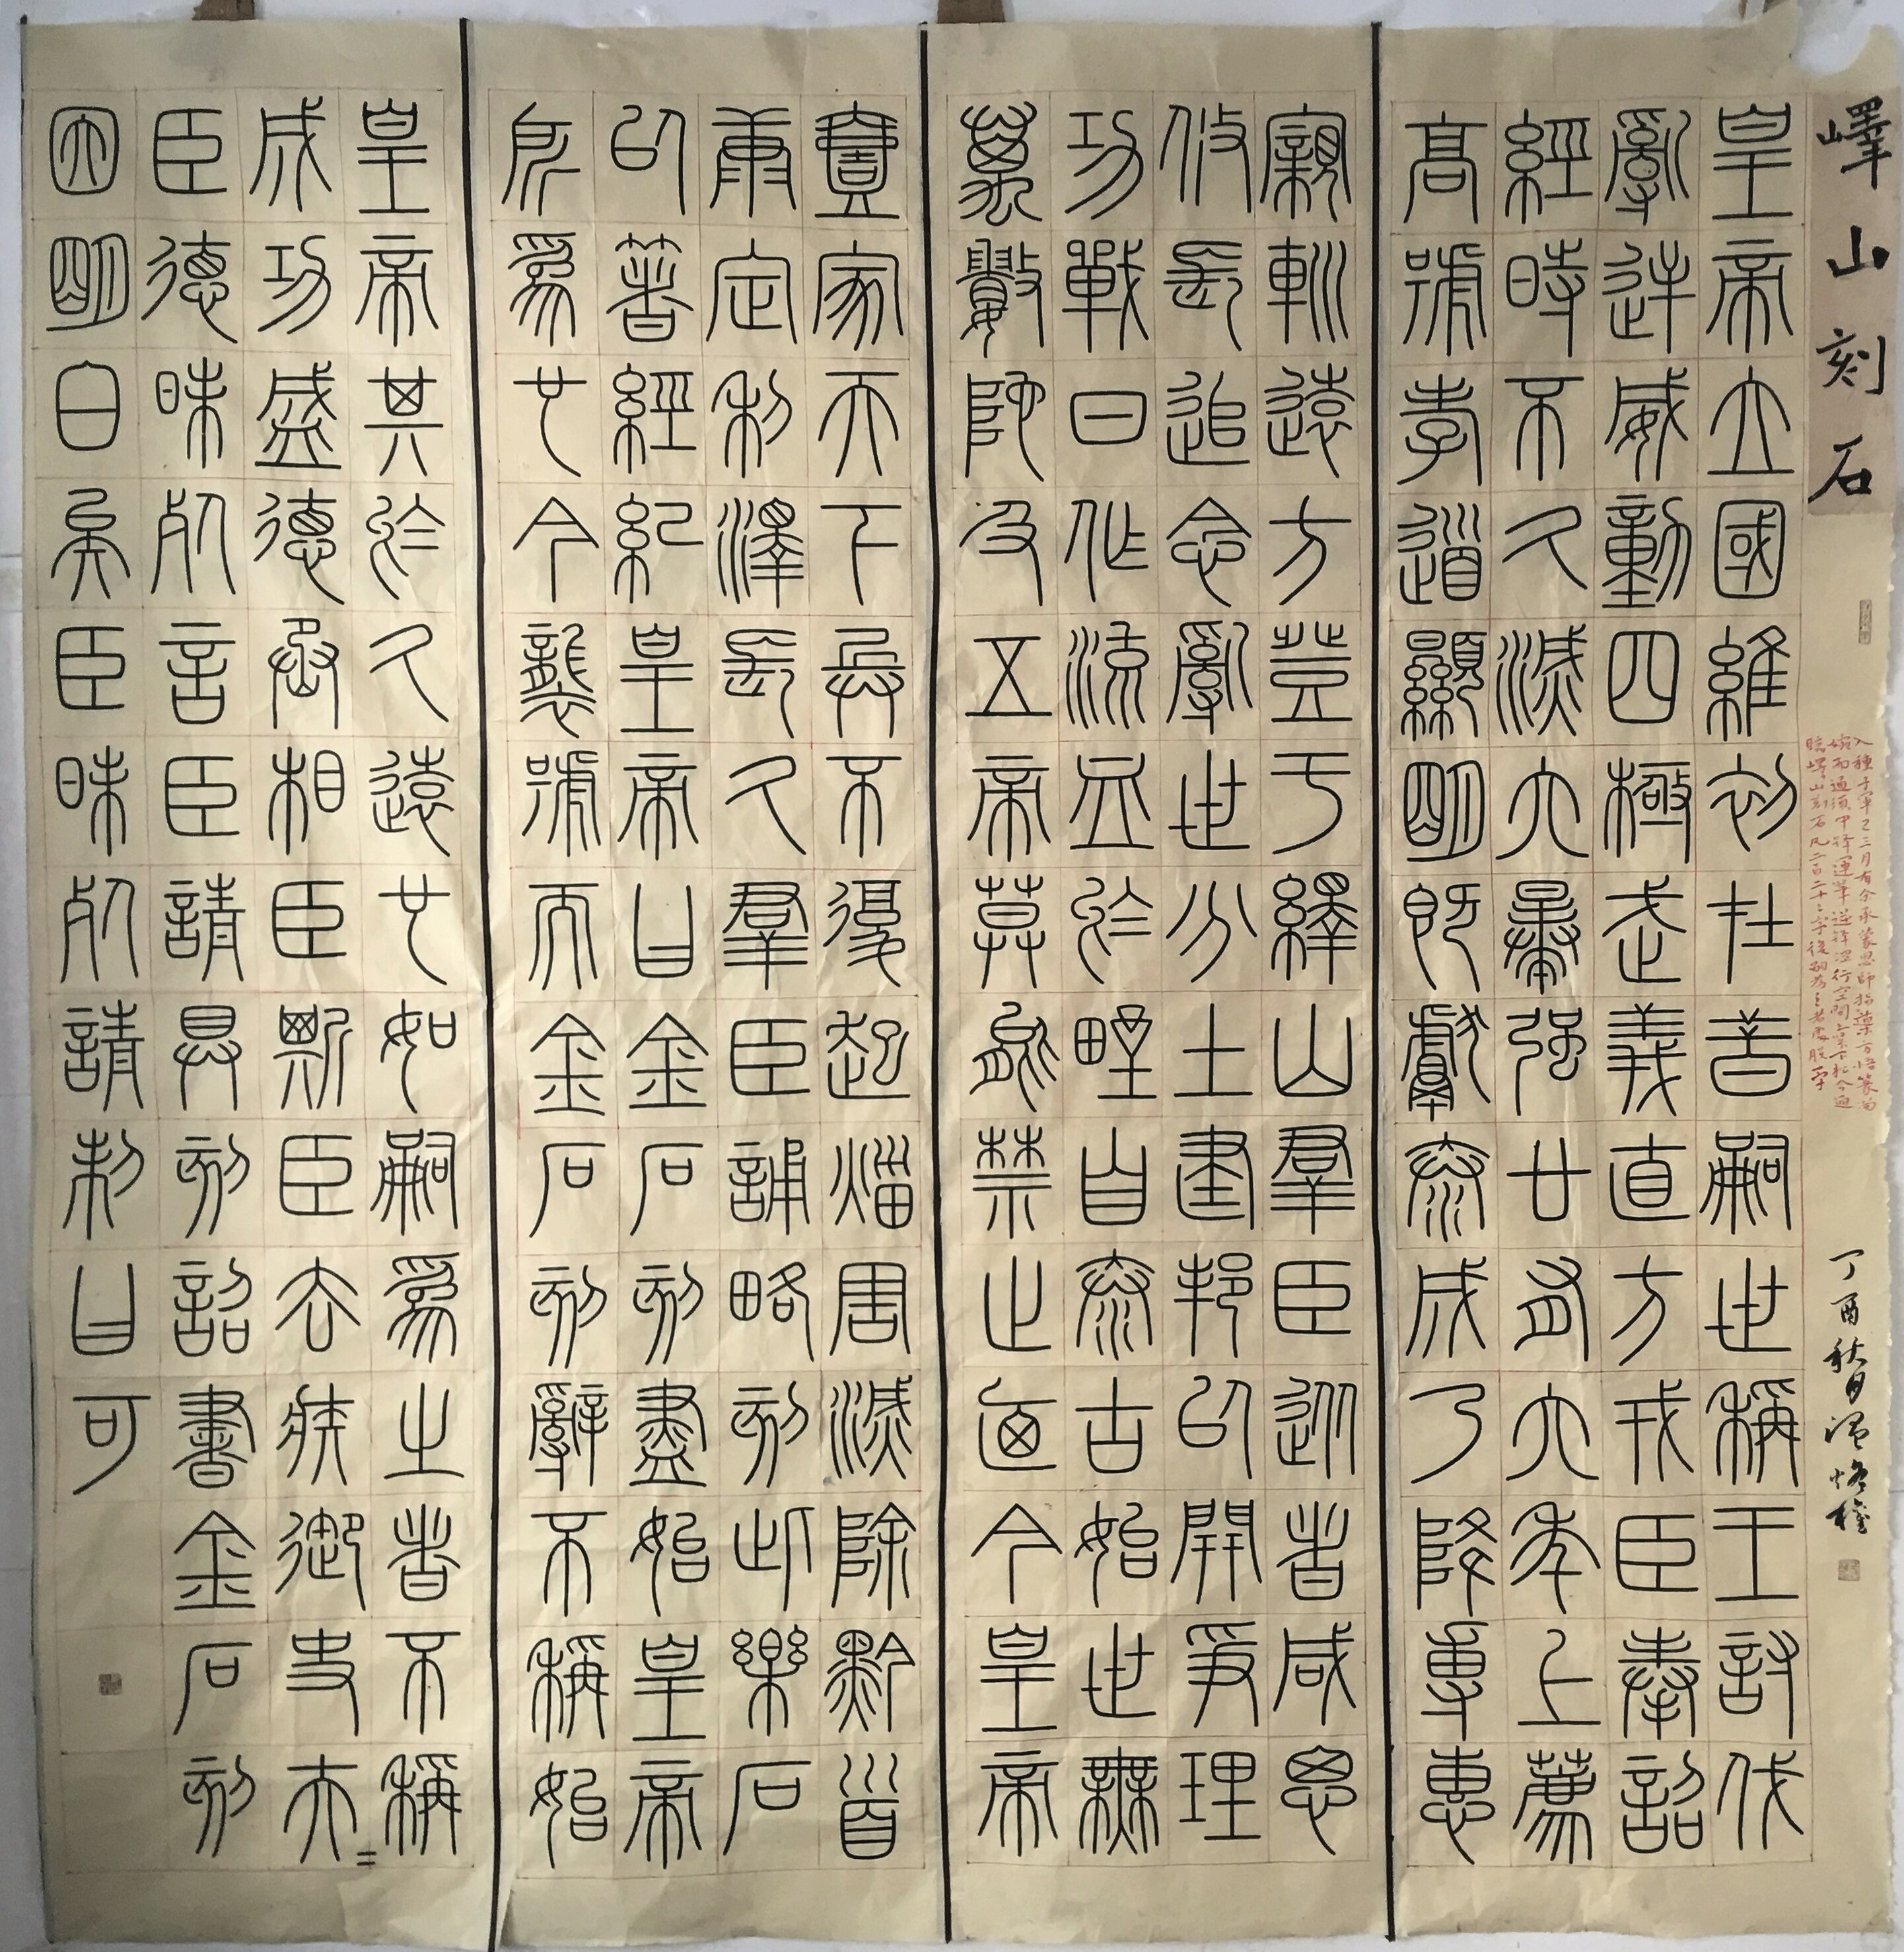 嶧山刻石
皇帝立國維初在昔嗣世稱王討伐
亂逆威動四極武義直方戎臣奉詔
經時不久滅六暴強廿有六年上薦
高號孝道顯明既獻泰成乃降尃惠
寴軔遠方登于繹山羣臣從者咸思
攸長追念亂世分土建邦以開爭理
功戰日作流血於野自泰古始世無
萬數陀及五帝莫能禁止廼今皇帝
壹家天下兵不復起災害滅除黔首
康定利澤長久羣臣誦略刻此樂石
以著經紀皇帝曰金石刻盡始皇帝
所爲也今襲號而金石刻辭不稱始
皇帝其於久遠也如嗣爲之者不稱
成功盛德丞相臣斯臣去疾御史夫=
臣德昧死言臣請具刻詔書金石刻
因明白矣臣昧死請制曰可
臨嶧山刻石凡二百二十字後嗣為之者處脫一字
丁酉秋月溫